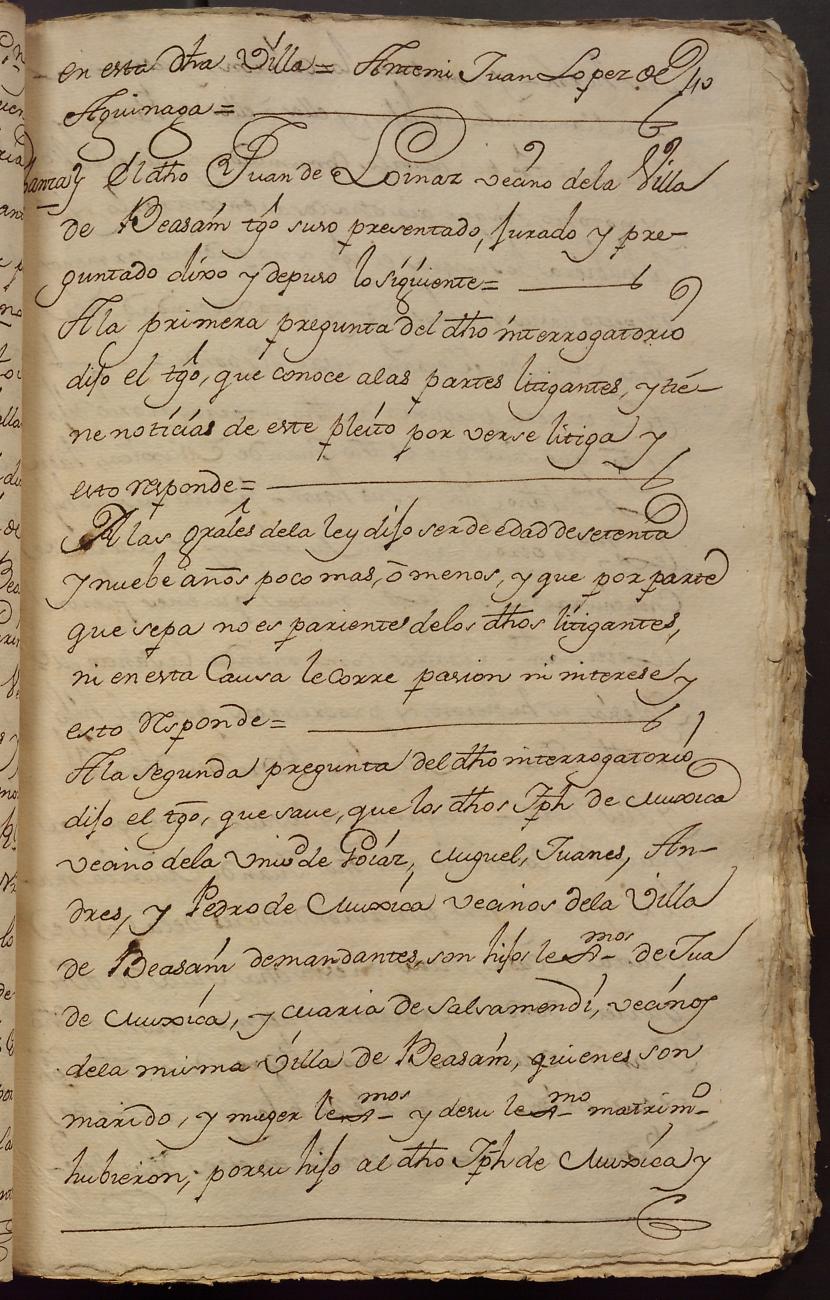 en esta dha Villa = Antemi Juan Lopez de
Aguinaga =
El dho Juan de Loinaz vecino dela Villa
de Beasaín tgo suso presentado, jurado y pre-
guntado dixo y depuso lo siguiente =
A la primera pregunta del dho interrogatorio
dijo el tgo, que conoce alas partes litigantes, y tie-
ne noticias de este pleito por verse litiga y
esto responde =
A las grales dela ley dijo ser de edad de setenta
y nuebe años poco mas, ó menos, y que por parte
que sepa no es pariente delos dhos litigantes,
ni en esta Causa le corre pasion ni interese y
esto responde =
A la segunda pregunta del dho interrogatorio
dijo el tgo, que save, que los dhos Jph de Muxica
vecino dela Univd de Gaiáz, Miguel, Juanes, An-
dres, y Pedro de Muxica vecinos dela Villa
de Beasaín demandantes, son hijos lexmos de Jua
de Muxica, y Maria de Salsamendi, vecinos
dela misma Villa de Beasaín, quienes son
marido, y muger lexmos y desu lexmo matrimo
hubieron, por su hijo al dho Jph de Muxica y